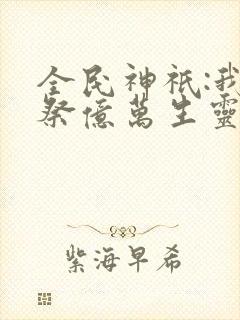 全民神祇:我
祭億萬生靈
紫海早希